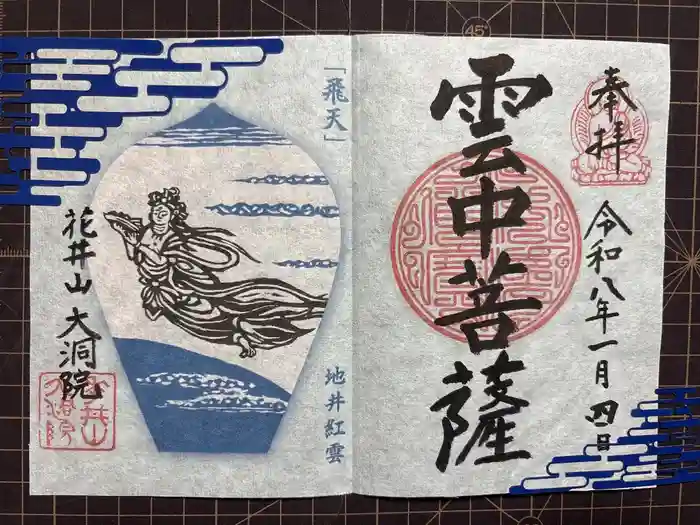 奉拝
雲中菩薩
令和八年一月四日
「飛天」
地井紅雲
花井山 大洞院
45°